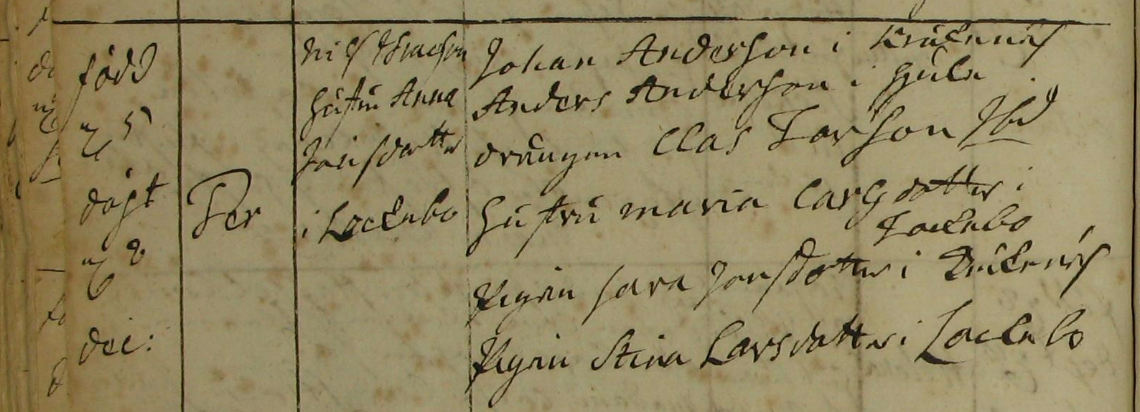 född
d 5
döpt
d 8
dec:
Per
Nils
hustru Anna
Jönsdotter
i Lockebo
Johan Anderson i
Anders Anderson i Hjule
drängen Clas Larson Ibid
Hustru Maria Larsdotter i
Lockebo
Pigan Sara Jonsdotter i
Pigan Stina Larsdotter i Lockebo